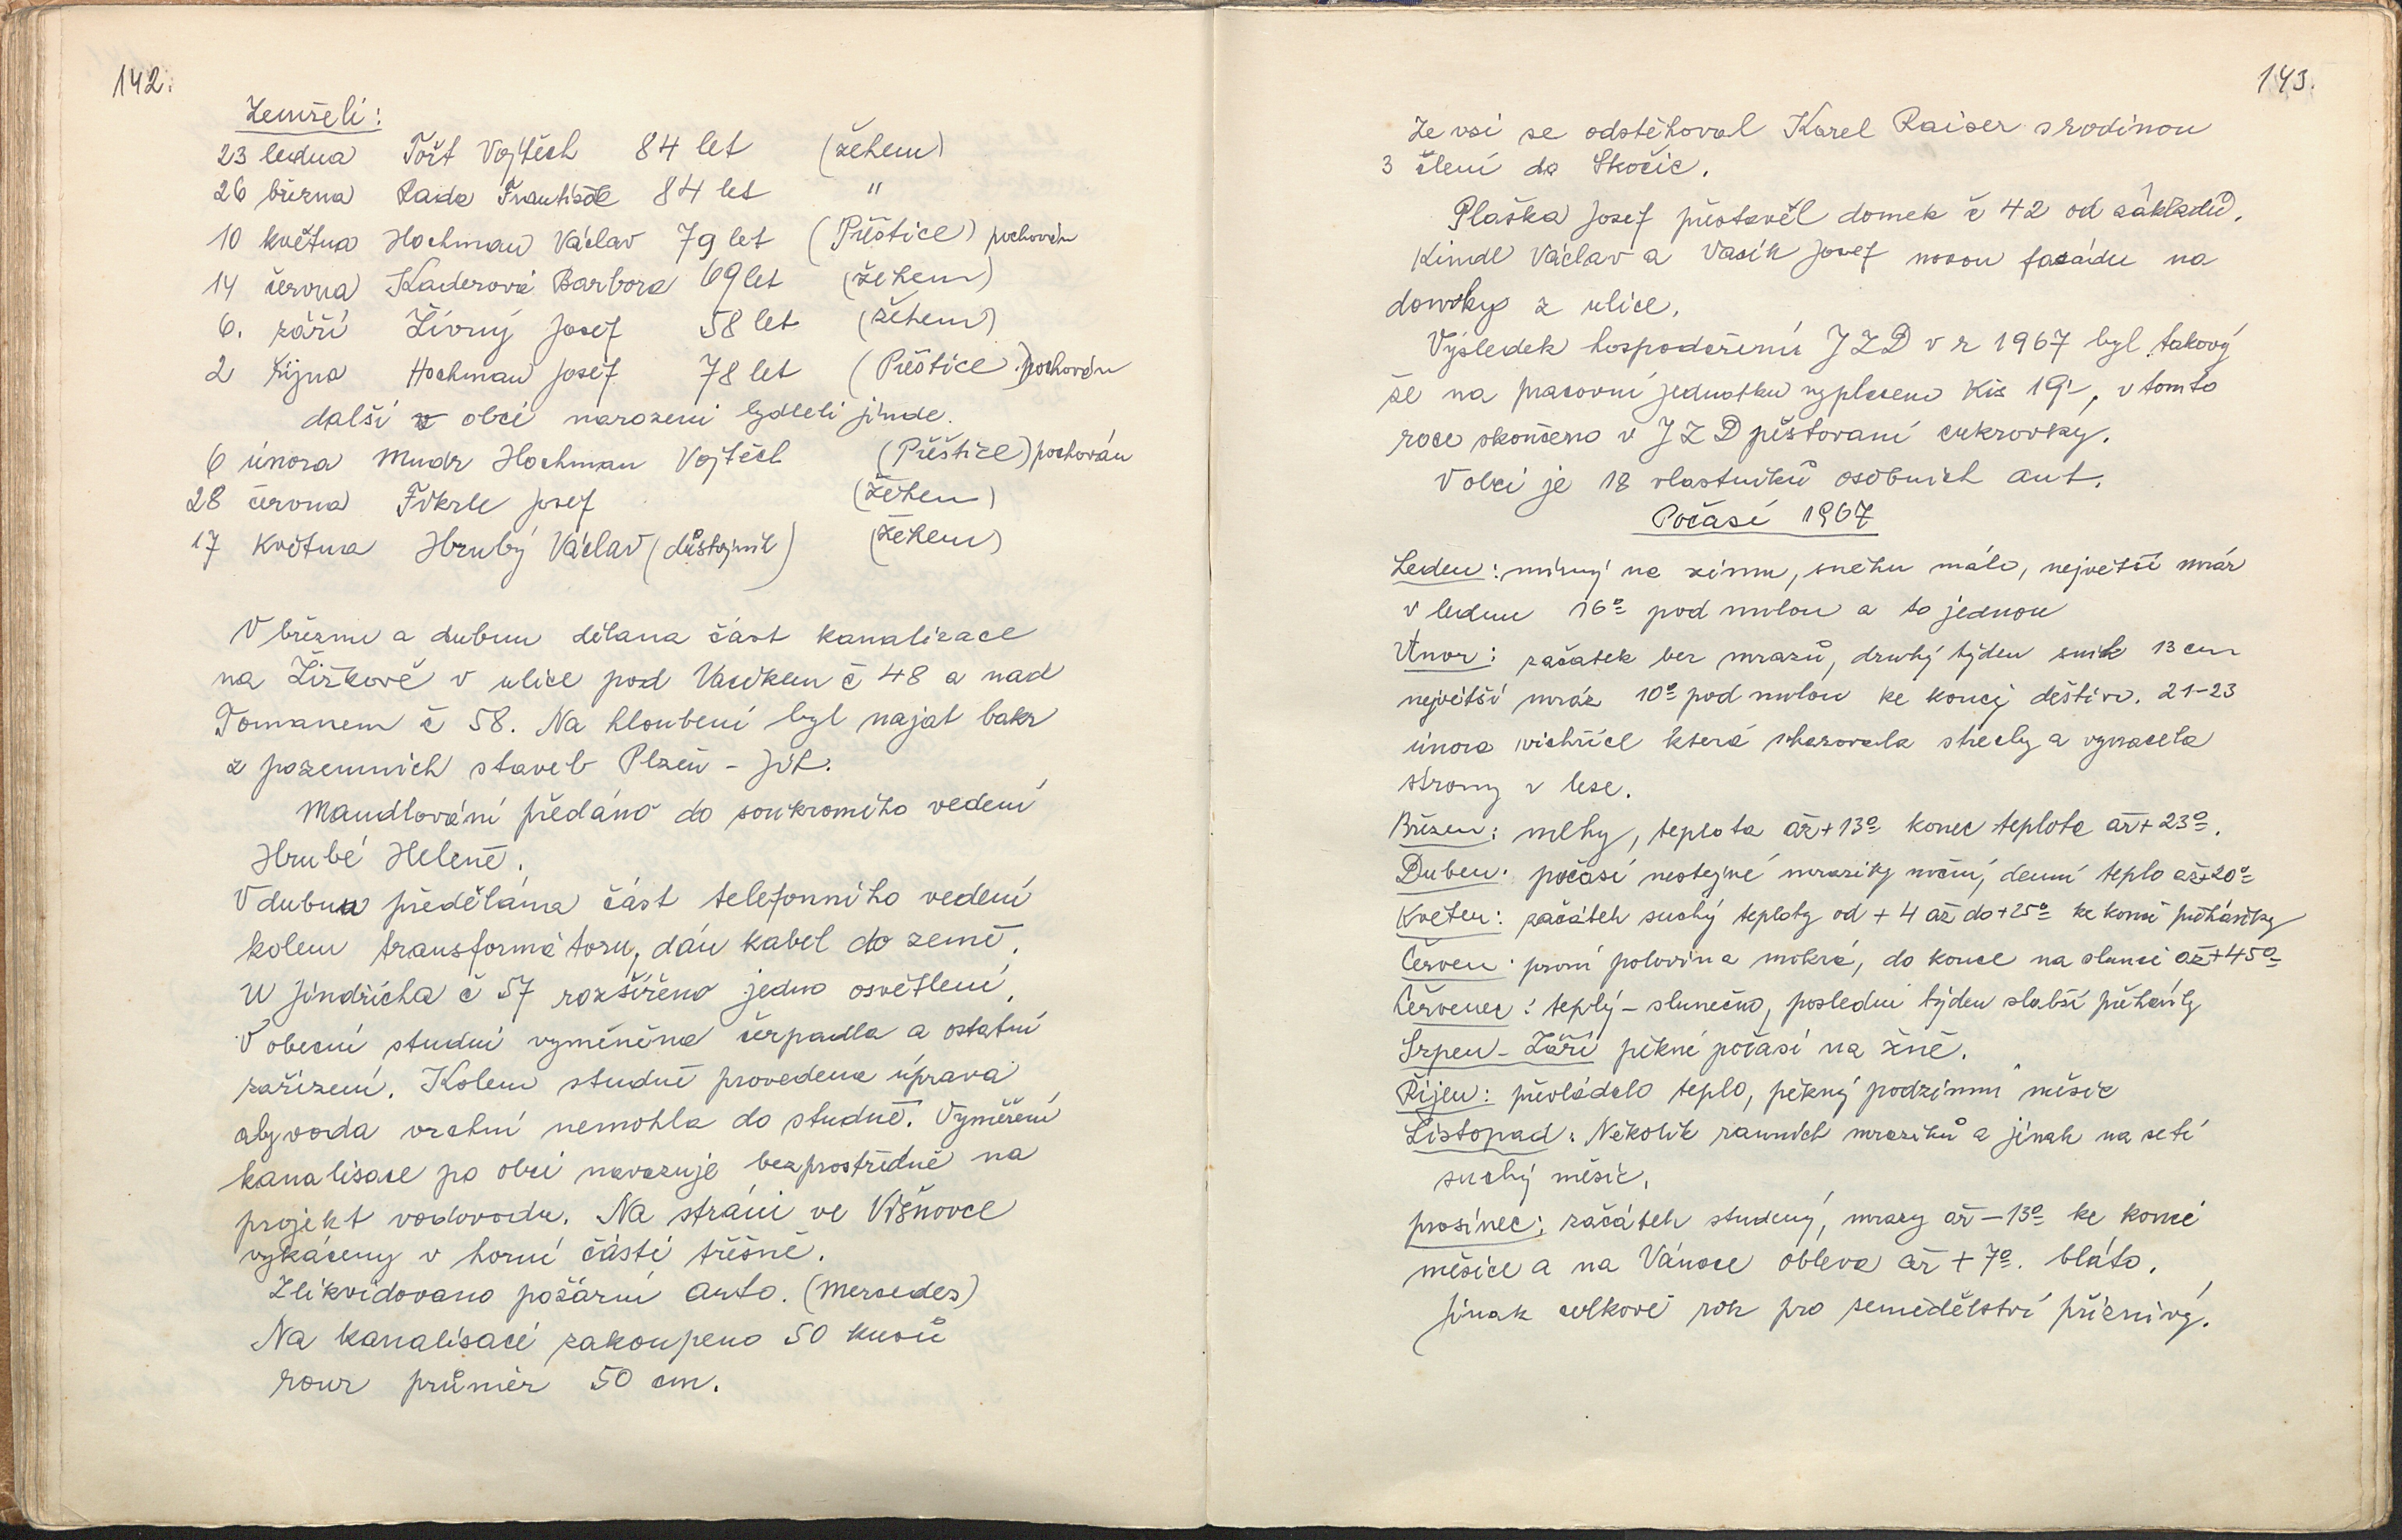 142.
Zemřeli:
23 ledna Tošt Vojtěch 84 let (žehem)
26 března Rada František 84 let "
10 května Hochman Václav 79 let (Přeštice) pochován
14 června Kaderová Barbora 69 let (žehem)
6. září Živný Josef 58 let (žehem)
2 října Hochman Josef 78 let (Přeštice) pochován
další v obci narozeni bydleli jinde.
6 února Mudr Hochman Vojtěch (Přěštice) pochován
28 června Fikrle Josef (žehem)
17 května Hrubý Václav (důstojník) (žehem)
V březnu a dubnu dělana část kanalizace
na Žižkově v ulice pod Vacíkem č 48 a nad
Tomanem č 58. Na hloubení byl najat bakr
z pozemních staveb Plzeň - jih.
Mandlování předáno do soukromého vedení
Hrubé Heleně.
V dubnu předělána část telefonního vedení
kolem transformátoru, dán kabel do země.
U Jindřicha č 57 rozšířeno jedno osvětlení.
V obecní studni vyměněna čerpadla a ostatní
zařízení. Kolem studně provedena úprava
aby voda vrchní nemohla do studně. Vyměření
kanalisace po obci navazuje bezprostředně na
projekt vodovodu. Na stráni ve Višňovce
vykáceny v horní části třěšně.
Zlikvidovano požární auto. (Mercedes)
Na kanalisaci zakoupeno 50 kusů
rour průměr 50 cm.
143.
Ze vsi se odstěhoval Karel Raiser s rodinou
3 členi do Skočic.
Plaška Josef přestavěl domek č 42 od základů.
Kindl Václav a Vasík Josef novou fasádu na
domky z ulice.
Výsledek hospodaření JZD v r 1967 byl takový
že na pracovní jednotku vyplaceno Kčs 19,-, v tomto
roce skončeno v JZD pěstovaní cukrovky.
V obci je 18 vlastníků osobních aut.
Počasí 1967
Leden: mírný na zimu, sněhu málo, největší mráz
v lednu 16° pod nulou a to jednou
Únor: začátek bez mrazů, druhý týden sníh 13 cm
největší mráz 10° pod nulou ke konci deštivo. 21-23
února vichřice která shazovala střechy a vyvracela
stromy v lese.
Březen: mlhy, teplota až +13° konec teplota až + 23°.
Duben: počasí nestejné mrazíky noční, denní teplo až +20°
Květen: začátek suchý teploty od + 4 až do +25° ke konci přeháňky
Červen: první polovina mokrá, do konce na slunci až +45°
Červenec: teplý - slunečno, poslední týden slabší přeháňky
Srpen - Září pěkné počasí na žně.
Říjen: převládalo teplo, pěkný podzimní měsíc
Listopad: Několik ranních mrazíků a jinak na setí
suchý měsíc.
prosinec: začátek studený, mrazy až - 13° ke konci
měsíce a na Vánoce obleva až + 7°. bláto.
Jinak celkově rok pro zemědělství příznivý.